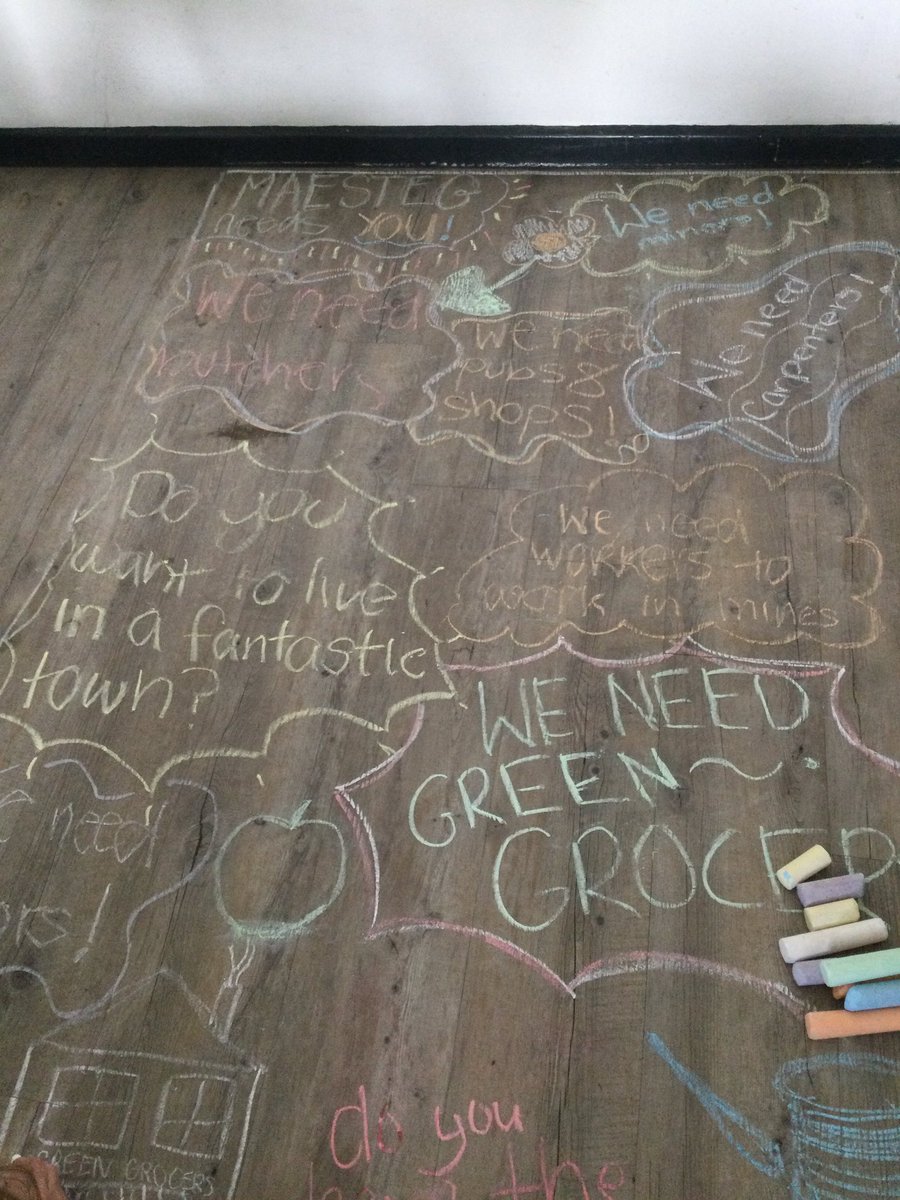 MAESTEG
needs YOU!
We need
miners!
We need
butchers
We need
pubs &
shops!
We need
carpenters!
Do you
want to live
in a fantastic
town?
We need
workers to
work in mines
WE NEED
GREEN
GROCER
need
ors!
GREEN GROCERS
do you
the